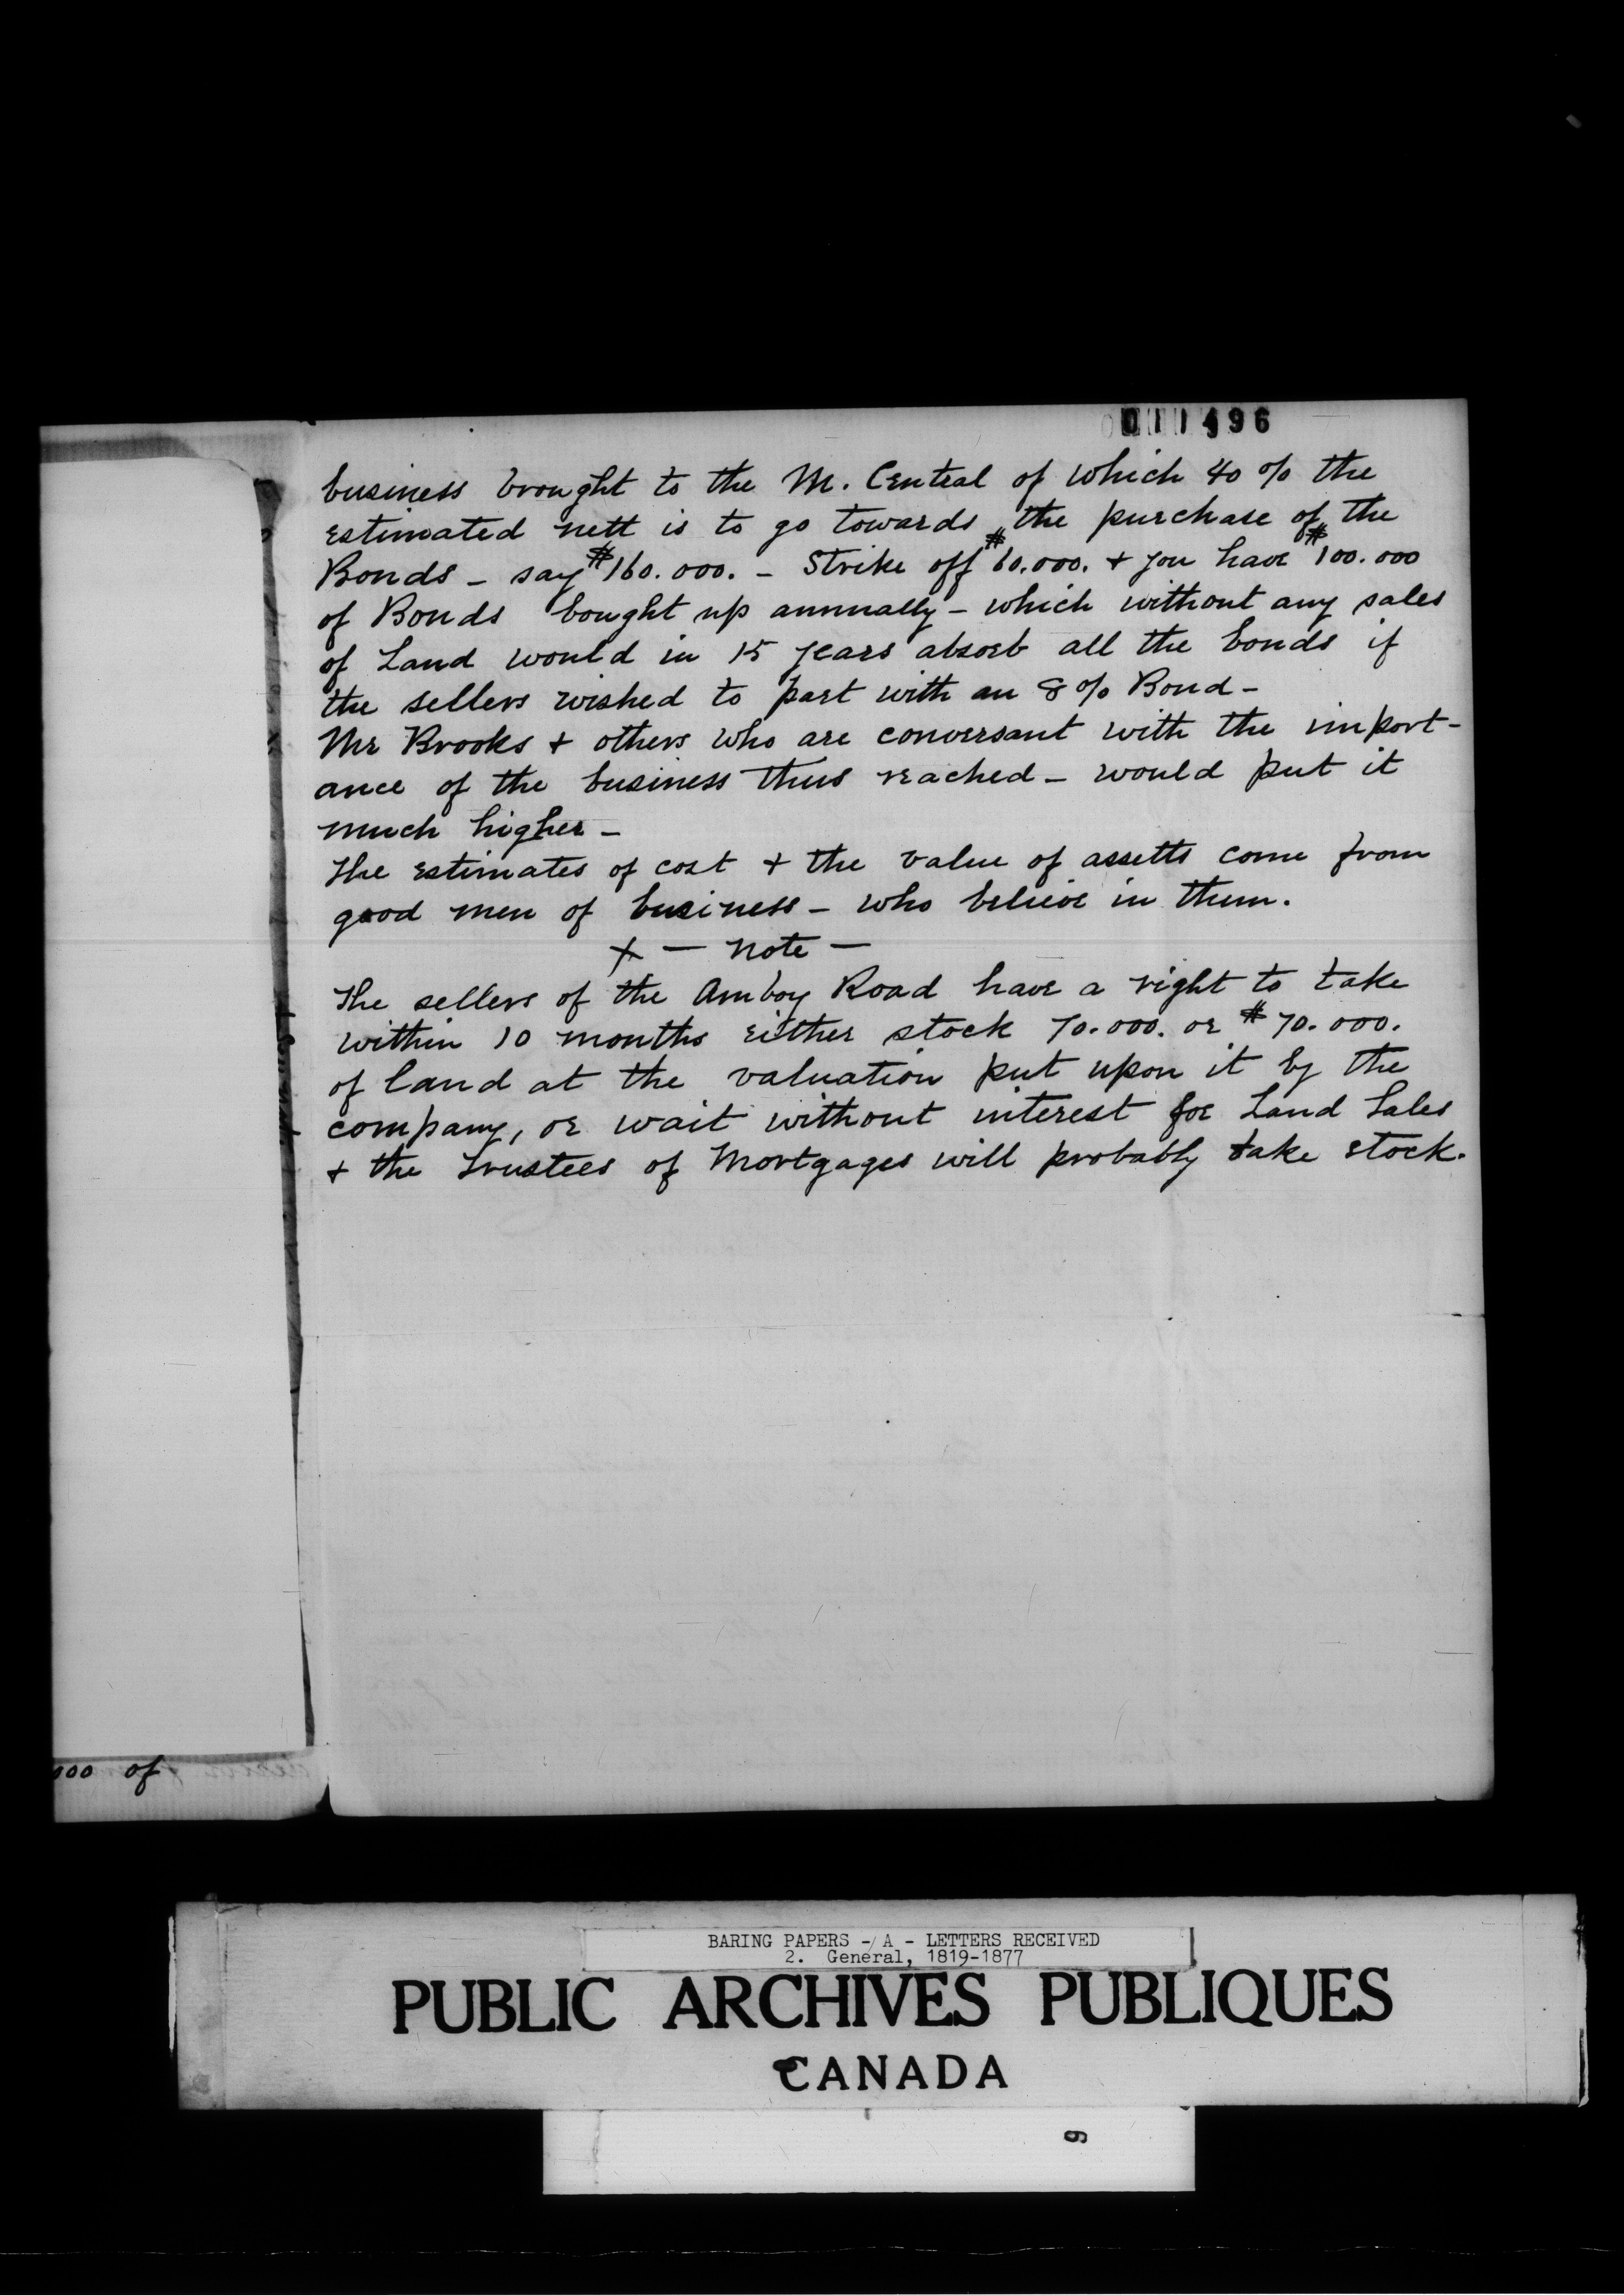 011496
business brought to the M. Central of which 40 % the
estimated nett is to go towards the purchase of the
Bonds - say $160.000. - Strike off $60.000. + you have $100.000
of Bonds bought up annually - which without any sales
of Land would in 15 years absorb all the bonds if
the sellers wished to part with an 8 % Bond -
Mr Brooks + others who are conversant with the import-
ance of the business thus reached - would put it
much higher -
The estimates of cost + the value of assetts come from
good men of business - who believe in them.
x - Note -
The sellers of the Amboy Road have a right to take
within 10 months either stock 70.000. or $70.000.
of land at the valuation put upon it by the
company, or wait without interest for Land Sales
+ the Trustees of Mortgages will probably take stock.
000 of
BARING PAPERS - A - LETTERS RECEIVED
2. General, 1819-1877
PUBLIC ARCHIVES PUBLIQUES
CANADA
9